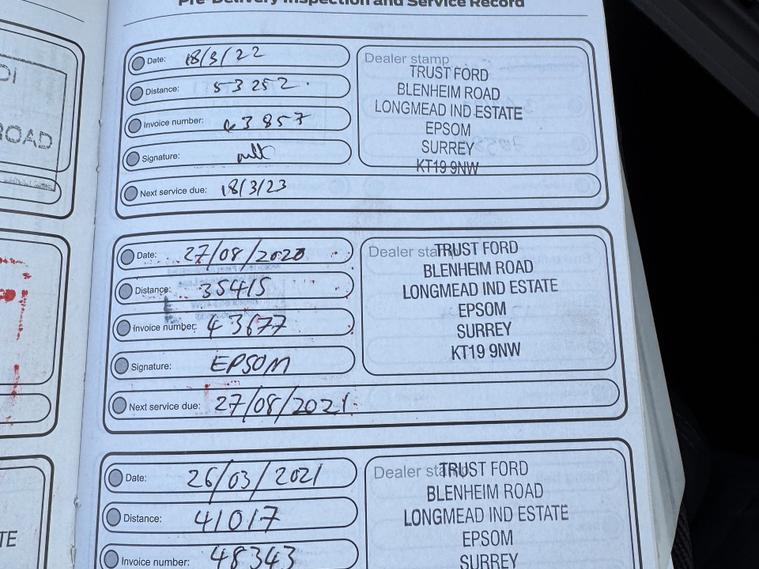 Pre-Delivery Inspection and Service Record
Date: 18/3/22
Distance: 53252.
Invoice number: 43857
Signature:
Next service due: 18/3/23
Dealer stamp
TRUST FORD
BLENHEIM ROAD
LONGMEAD IND ESTATE
EPSOM
SURREY
KT19 9NW
Date: 27/08/2020
Distance: 35415
Invoice number: 43677
Signature: EPSOM
Next service due: 27/08/2021
Dealer stamp
TRUST FORD
BLENHEIM ROAD
LONGMEAD IND ESTATE
EPSOM
SURREY
KT19 9NW
Date: 26/03/2021
Distance: 41017
Invoice number: 48343
Dealer stamp
TRUST FORD
BLENHEIM ROAD
LONGMEAD IND ESTATE
EPSOM
SURREY
DI
ROAD
TE